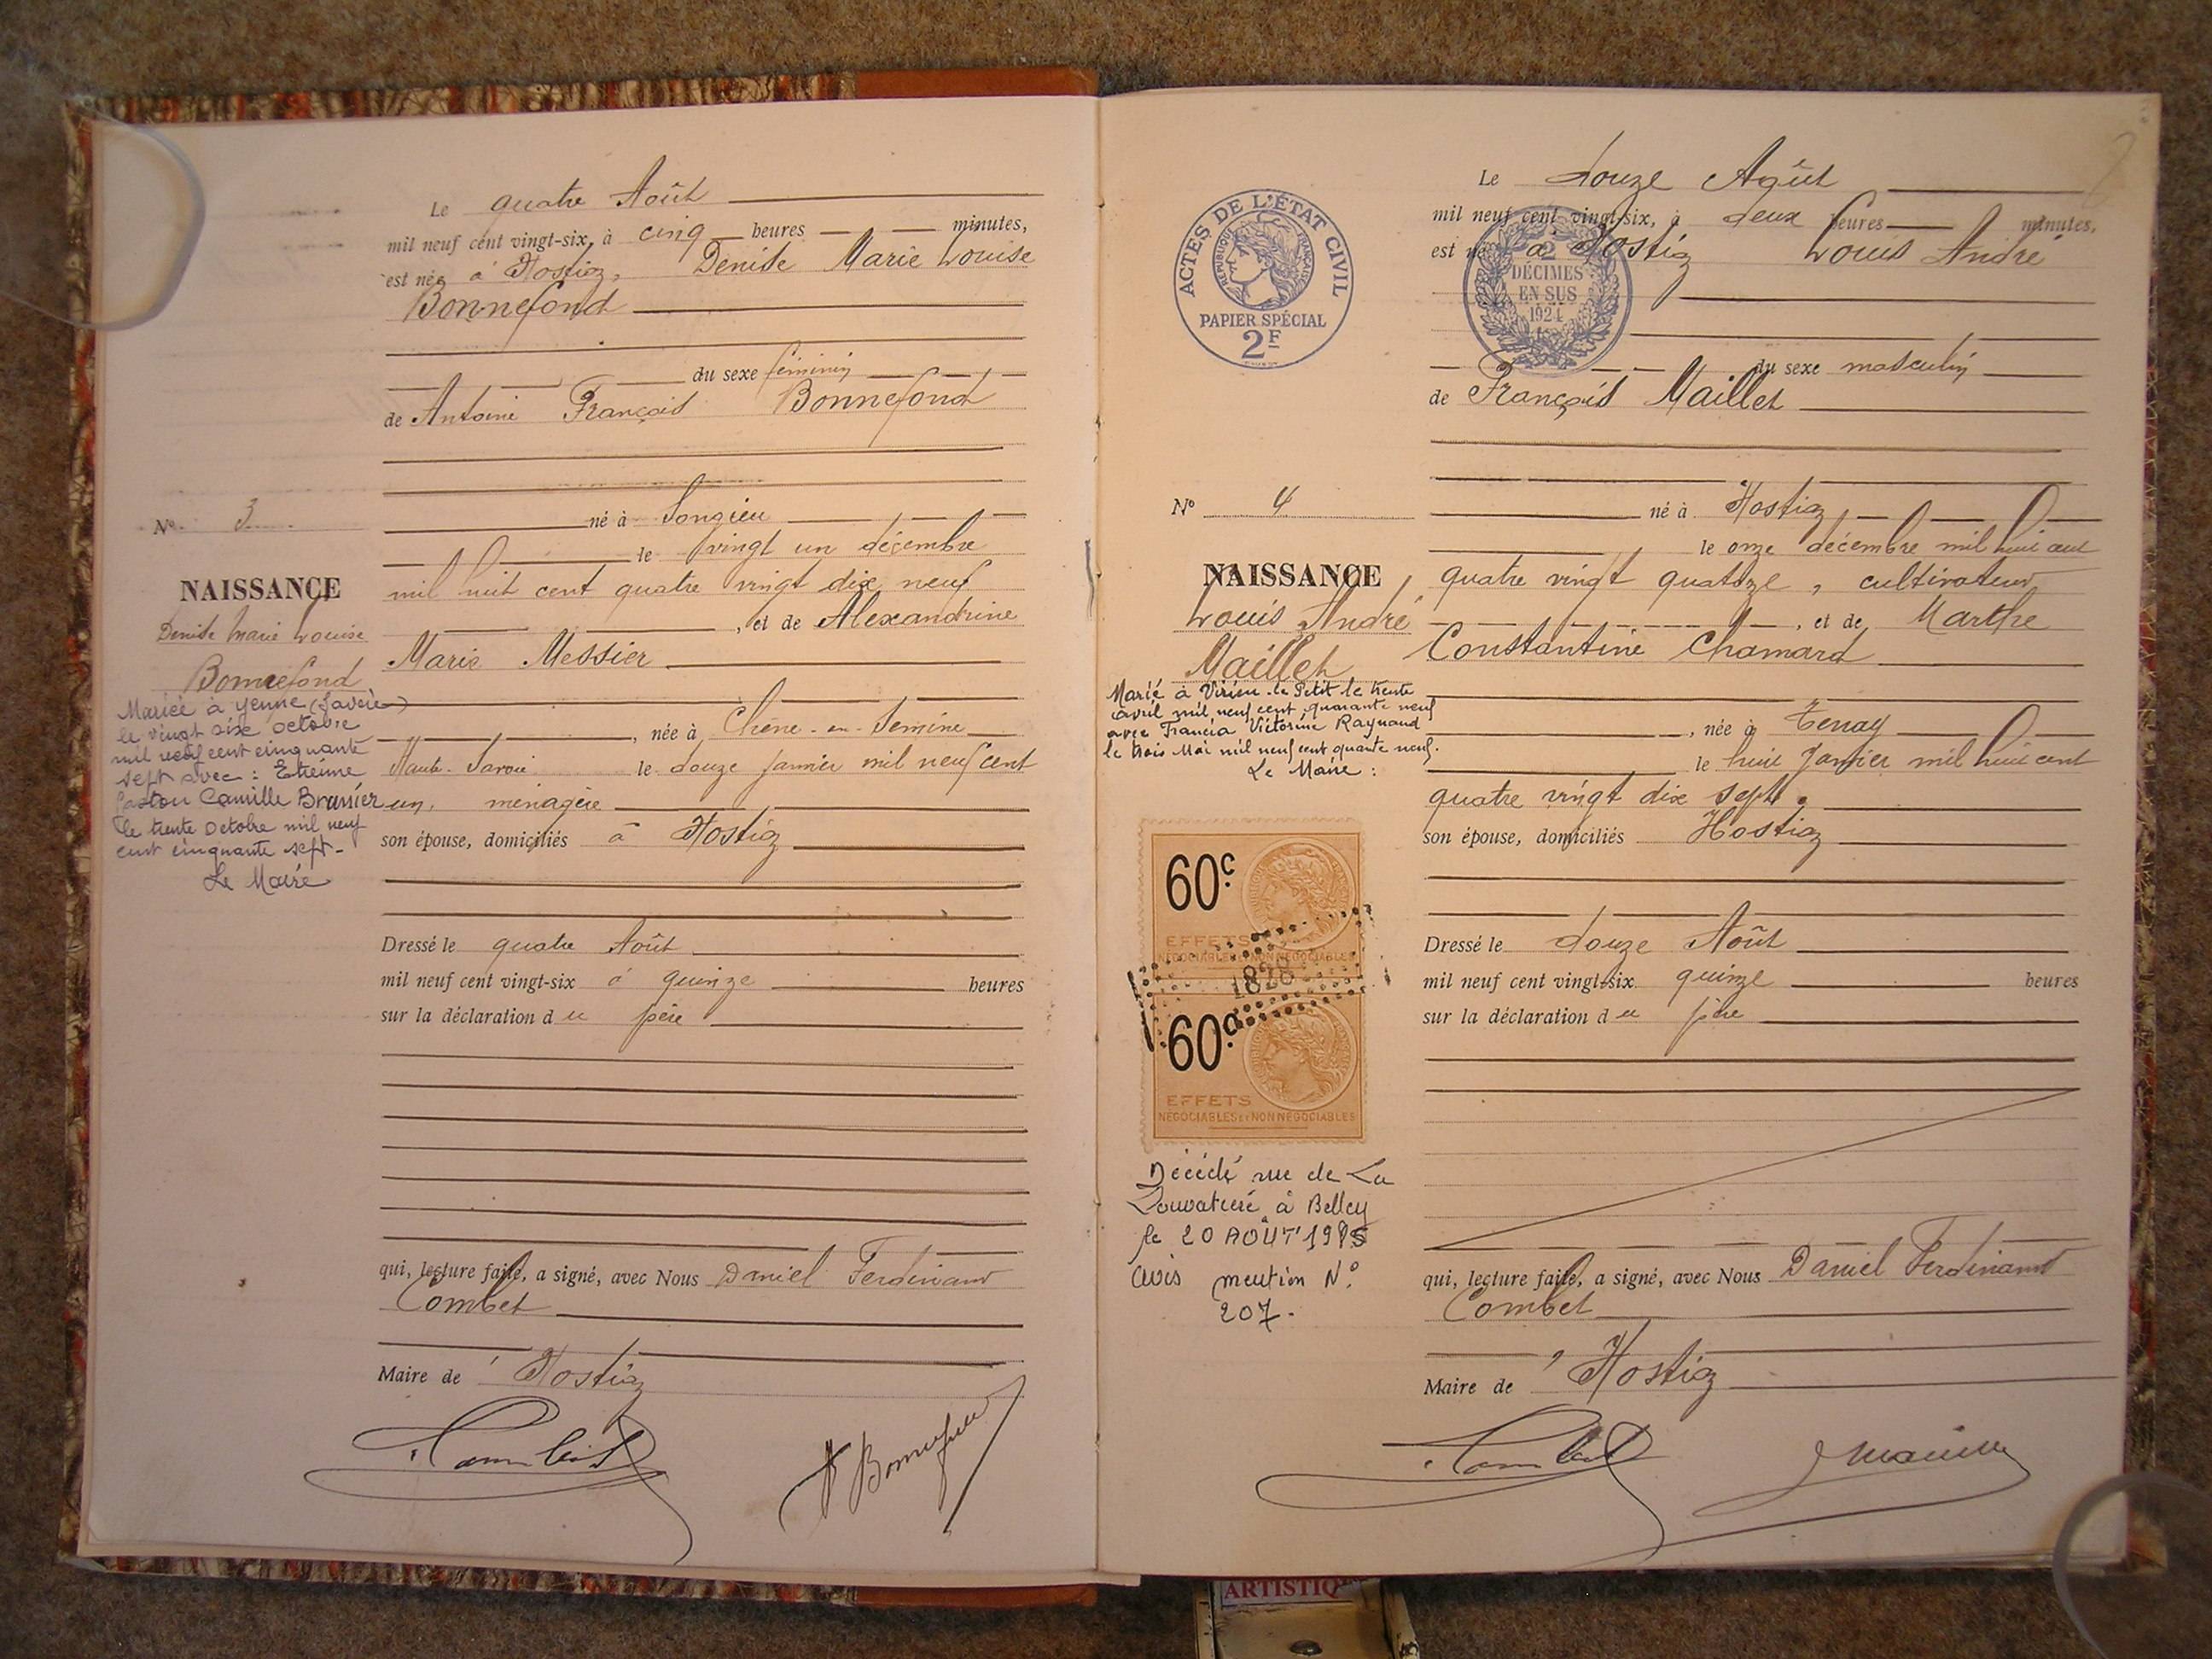 Le quatre Août
mil neuf cent vingt-six, à cinq heures minutes,
est née à Hostiaz, Denise Marie Louise
Bonnefond
du sexe féminin
de Antoine François Bonnefond
né à Songieu
le vingt un décembre
mil huit cent quatre vingt dix neuf
, et de Alexandrine
Marie Messier
, née à Chêne-en-Semine
Haute-Savoie le douze janvier mil neuf cent
un, ménagère
son épouse, domiciliés à Hostiaz
Dressé le quatre Août
mil neuf cent vingt-six à quinze heures
sur la déclaration du père
qui, lecture faite, a signé, avec Nous Daniel Ferdinand
Combet
Maire de Hostiaz
Combet
A Bonnefond
No. 3
NAISSANCE
Denise Marie Louise
Bonnefond
Mariée à Yenne (Savoie)
le vingt six octobre
mil neuf cent cinquante
sept avec : Etienne
Gaston Camille Brunier
le trente octobre mil neuf
cent cinquante sept-
Le Maire
ACTES DE L'ÉTAT CIVIL
RÉPUBLIQUE FRANÇAISE
PAPIER SPÉCIAL
2F
2
DÉCIMES
EN SUS
1924
Le douze Août
mil neuf cent vingt-six, à deux heures minutes,
est né à Hostiaz Louis André
du sexe masculin
de François Maillet
né à Hostiaz,
le onze décembre mil huit cent
quatre vingt quatorze, cultivateur,
, et de Marthe
Constantine Chamard
, née à Tenay
le huit Janvier mil huit cent
quatre vingt dix sept.
son épouse, domiciliés Hostiaz
Dressé le douze Août
mil neuf cent vingt-six quinze heures
sur la déclaration du père
qui, lecture faite, a signé, avec Nous Daniel Ferdinand
Combet
Maire de Hostiaz
Combet
Maillet
No 4
NAISSANCE
Louis André
Maillet
Marié à Virieu-le Petit le trente
avril mil neuf cent quarante neuf
avec Francia Victorine Raynaud
le trois Mai mil neuf cent quarante neuf.
Le Maire :
60c.
EFFETS
NÉGOCIABLES ET NON NÉGOCIABLES
60c.
EFFETS
NÉGOCIABLES ET NON NÉGOCIABLES
Décédé rue de La
Louvatière à Belley
le 20 AOÛT 1985
avis mention N°
207-
ARTISTIQ